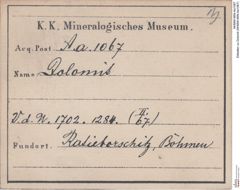 K. K. Mineralogisches Museum.
Acq. Post A.a. 1067
Name Dolomit
V. d. N. 1702. 1284. (II. 67.)
Fundort. Ratieborschitz, Böhmen